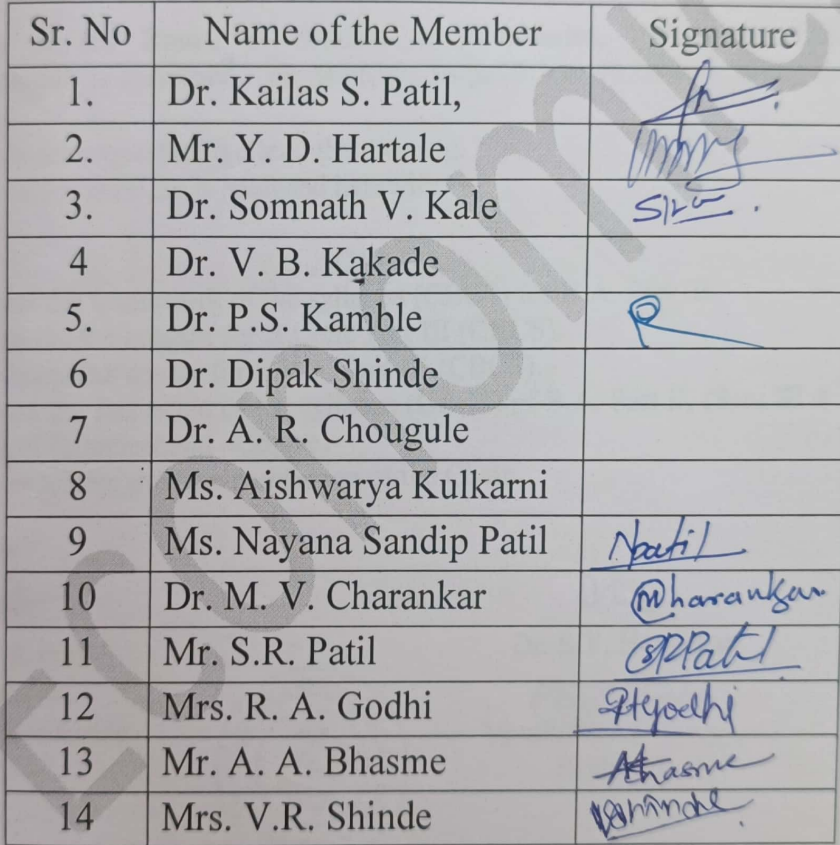 Sr. No Name of the Member Signature
1. Dr. Kailas S. Patil,
2. Mr. Y. D. Hartale
3. Dr. Somnath V. Kale
4 Dr. V. B. Kakade
5. Dr. P.S. Kamble
6 Dr. Dipak Shinde
7 Dr. A. R. Chougule
8 Ms. Aishwarya Kulkarni
9 Ms. Nayana Sandip Patil Npatil
10 Dr. M. V. Charankar
11 Mr. S.R. Patil SRPatil
12 Mrs. R. A. Godhi
13 Mr. A. A. Bhasme
14 Mrs. V.R. Shinde
Economic